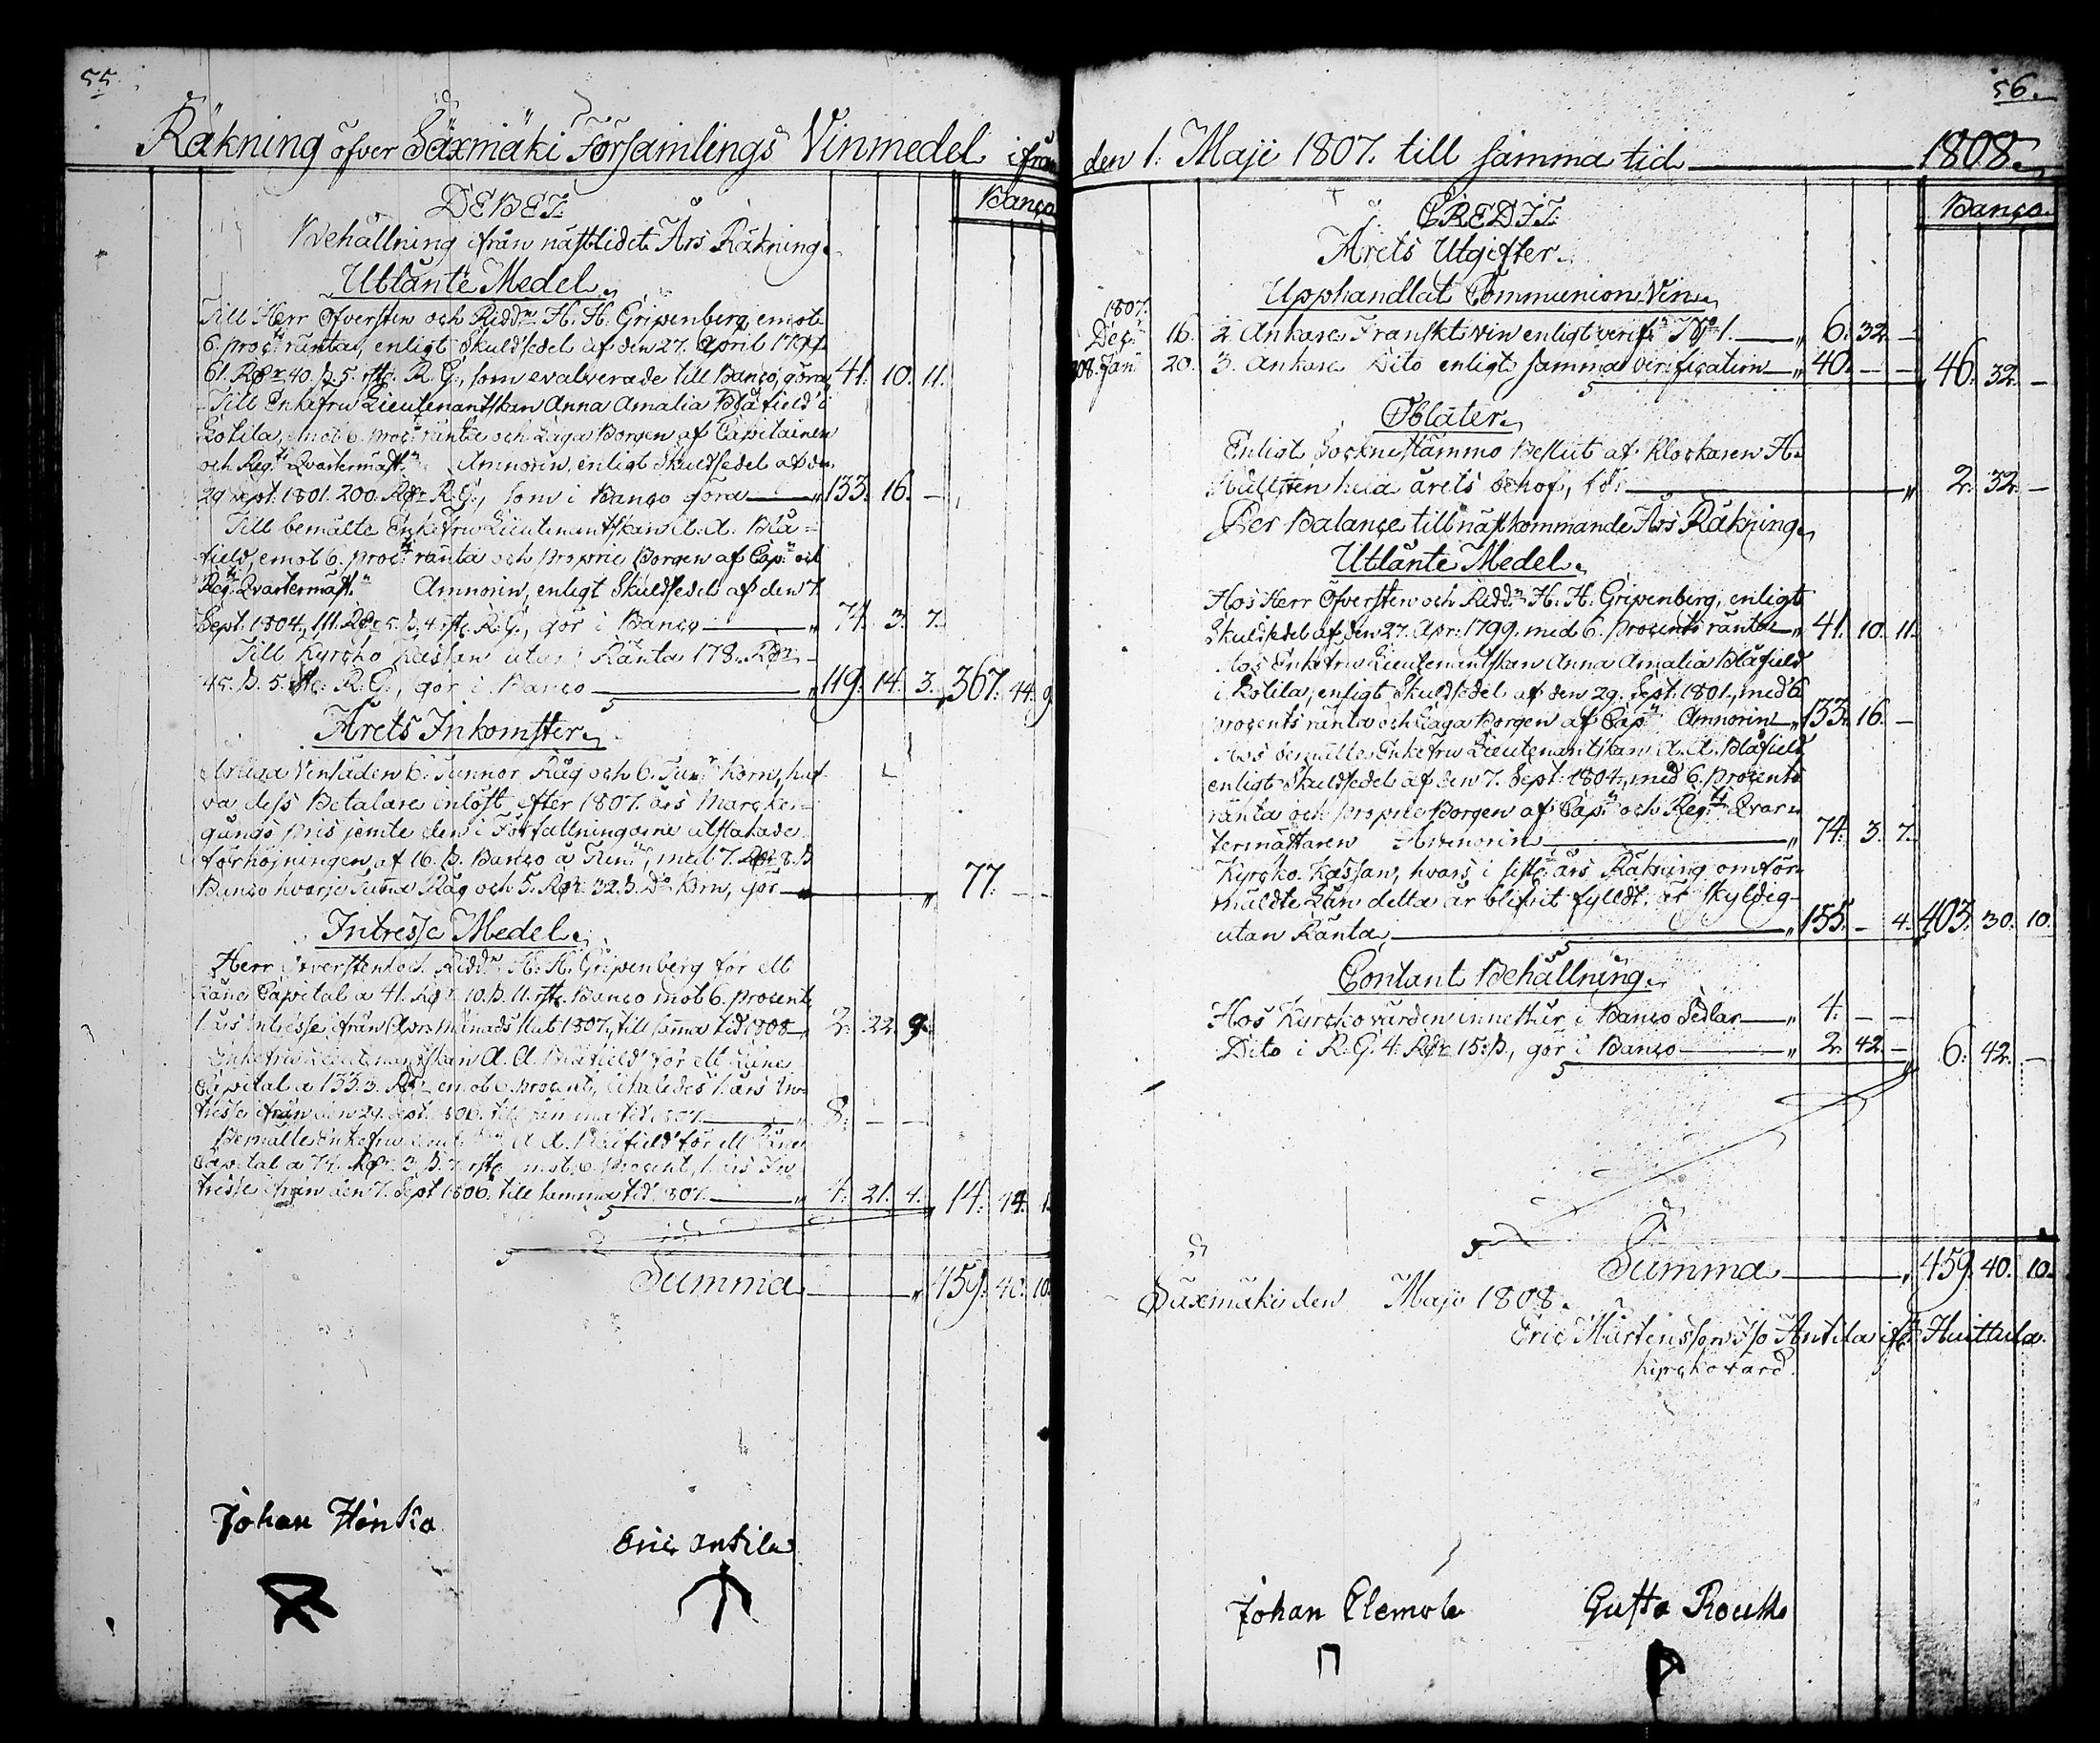 55.
Räkning öfver Säxmäki Församlings Vinmedel ifrån
DEBET.
Banco
Behållning ifrån nästledit Års Räkning.
Utlånte Medel.
Till Herr Öfversten och Riddn H. H. Gripenberg, emot
6. proct ränta, enligt Skuldsedel af den 27. April 1799
61. Rdr 40. ß. 5. rst. R. G., som evalverade till Banco, göra 41. 10. 11.
Till Enkefru Lieutenantskan Anna Amalia Blåfield i
Kotila, emot 6. proct ränta och Laga Borgen af Capitainen
och Regts Qvartermästn Amnorin, enligt Skuldsedel af den
29 Sept. 1801. 200. Rdr R. G., som i Banco göra 133. 16. —
Till bemälte Enkefru Lieutenantskan A. A. Blå=
field, emot 6. proct ränta och proprie Borgen af Capn och
Regts Qvartermästn Amnorin, enligt Skuldsedel af den 7.
Sept. 1804, 111. Rdr 5. ß. 4 rst. R. G., gör i Banco 74. 3. 7.
Till Kyrcko Kassan utan Ränta 178. Rdr
45. ß. 5. rst. R. G., gör i Banco 119. 14. 3. 367. 44. 9.
Årets Inkomster.
Årliga Vinsäden 6. Tunnor Råg och 6. Tunr Korn, haf
va dess Betalare inlöst efter 1807. års Marcke
gångs pris jemte den i Författningarne utstakade
förhöjningen af 16. ß. Banco à Tunn, med 7. Rdr 8. ß
Banco hvarje Tunna Råg och 5. Rdr 32. ß. Do Korn, gör 77. — —
Intresse Medel.
Herr Öfversten och Riddn H. H. Gripenberg för ett
Låne Capital a 41. Rdr 10. ß. 11. rst. Banco mot 6. procent
1. års intresse ifrån Aprs månads slut 1807, till samma tid 1808 2. 22. 9.
Enkefru Lieutenantskan A. A. Blåfield för ett Låne
Capital a 133. Rdr emot 6. procent, likaledes 1. års In=
tresse ifrån den 29. Sept. 1806. till samma tid 1807. 8. — —
Bemälte Enkefru A. A. Blåfield för ett Låne
Capital a 74. Rdr 3. ß. 7. rst. mot 6. procent, 1. års In
tresse ifrån den 7. Sept 1806. till samma tid 1807. 4. 21. 4. 14. 44. 1.
Summa 459. 40. 10.
Johan Hinka
Eric Antila
56.
den 1. Maji 1807. till samma tid 1808.
CREDIT.
Banco.
Årets Utgifter.
Upphandlat Communion Vin.
1807.
Decr 16. 2. Ankare Franskt vin enligt verifn No 1. 6. 32. —
1808. Jan 20. 3. Ankare Dito enligt samma verification 40. — — 46. 32. —
Oblater.
Enligt Socknestämmo Beslut af Klockaren H.
Hällsten hela årets behof, för 2. 32. —
Per Balance till näskommande Års Räkning.
Utlånte Medel.
Hos Herr Öfversten och Riddn H. H. Gripenberg, enligt
Skuldsedel af den 27. Apr. 1799. med 6. procents ränta 41. 10. 11.
Hos Enkefru Lieutenantskan Anna Amalia Blåfield
i Kotila, enligt Skuldsedel af den 29. Sept. 1801., med 6
procents ränta och Laga Borgen af Capn Amnorin 133. 16. —
Hos bemälte Enkefru Lieutenantskan A. A. Blåfield
enligt Skuldsedel af den 7. Sept. 1804, med 6. procents
ränta och proprie Borgen af Capn och Regts Qvar=
termästaren Amnorin 74. 3. 7.
Kyrcko Kassan, hvars i sist. års Räkning omför=
mäldte Lån detta år blifvit fylldt, är Skyldig
utan Ränta, 155. — 4. 403. 30. 10.
Contant Behållning.
Hos Kyrckovärden innestår i Banco Sedlar 4. — —
Dito i R. G. 4. Rdr 15. ß., gör i Banco 2. 42. — 6. 42. —
Summa 459. 40. 10.
Säxmäki den Maji 1808.
Eric Mårtensson Antila ifr Huittula.
Kyrckovärd
Johan Clemola
Gusta Rouko